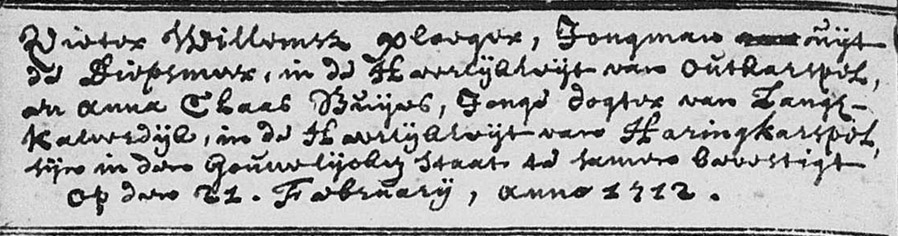 Pieter Willemsz ploeger, Jongman uijt
de Diepsmeer, in de Heerlijkheijt van Outkarspel,
en Anna Claas Buijes, Jonge dogter van Lange-
Kalverdijk, in de Heerlijkheijt van Haringkarspel,
sijn in den Houwelijcken Staat te samen bevestigt
op den 21. February, anno 1712.